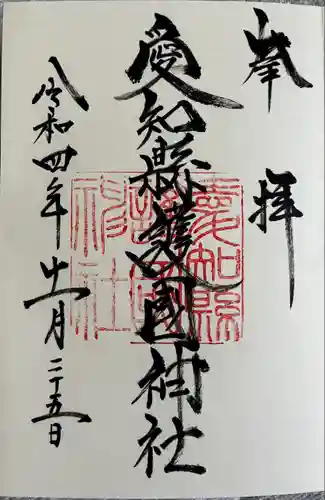 奉拝
愛知縣護國神社
令和四年十一月二十五日
愛知縣
護國
神社